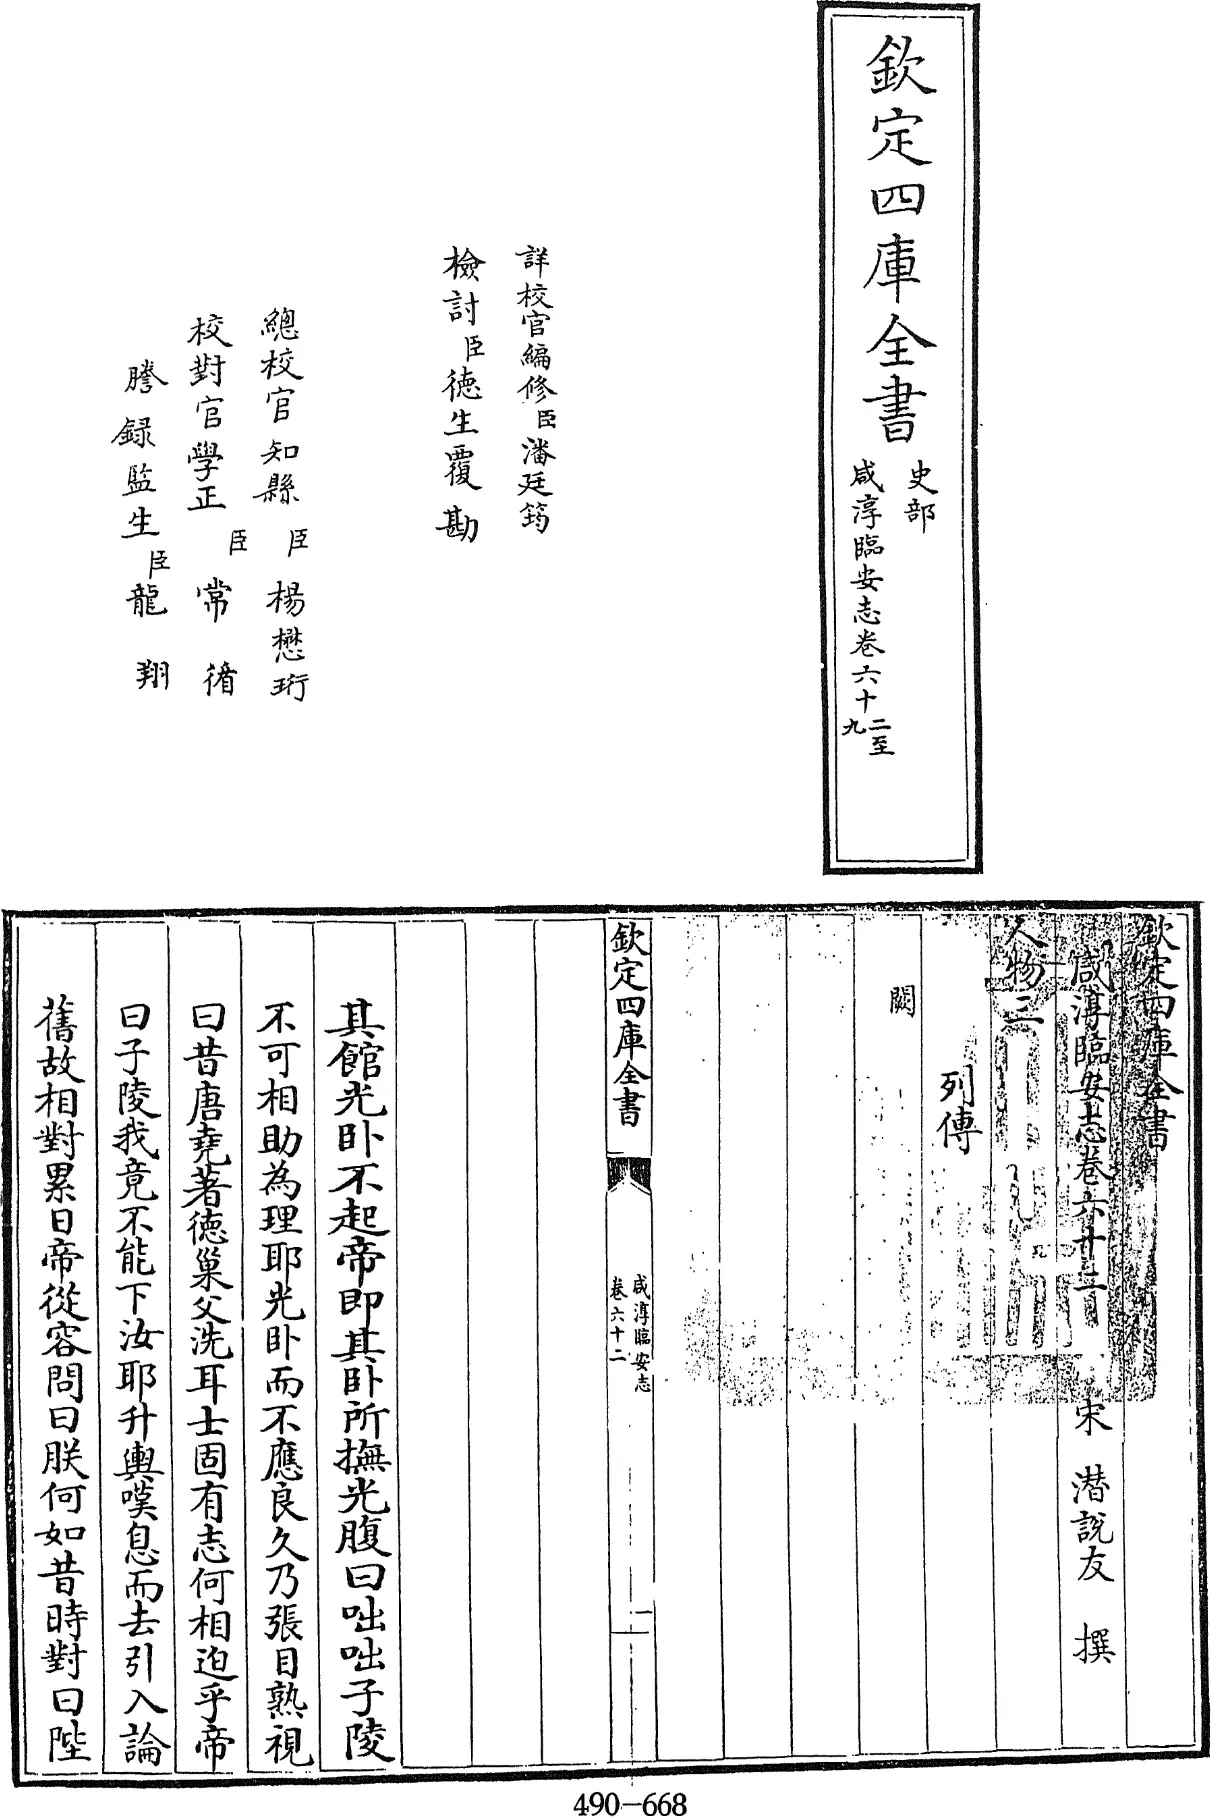 欽定四庫全書
史部
咸淳臨安志卷六十二至九
詳校官編修臣潘廷筠
檢討臣德生覆勘
總校官知縣臣楊懋珩
校對官學正臣常循
謄錄監生臣龍翔
欽定四庫全書
咸淳臨安志卷六十二
宋 潜說友 撰
人物二
列傳
闕
欽定四庫全書
咸淳臨安志
卷六十二
一
其館光卧不起帝即其卧所撫光腹曰咄咄子陵
不可相助為理耶光卧而不應良久乃張目熟視
曰昔唐堯著德巢父洗耳士固有志何相迫乎帝
曰子陵我竟不能下汝耶升輿嘆息而去引入論
舊故相對累日帝從容問曰朕何如昔時對曰陛
490-668